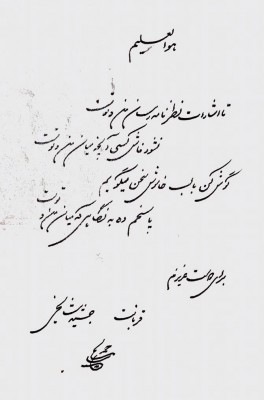 هوالعلیم
تا اشارات نظر نامه رسان من و توست
نشود فاش کسی آنچه میان من و توست
گوش کن با لب خاموش سخن میگویم
پاسخم ده به نگاهی که میان من و توست
برای حالت عزیزم
قربانت